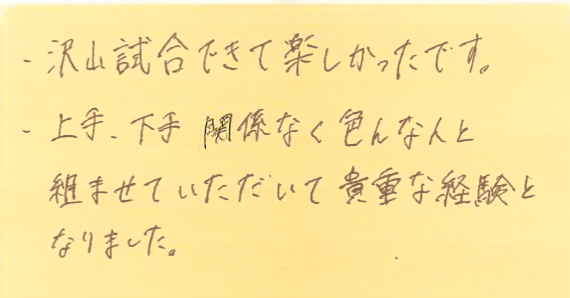 - 沢山試合できて楽しかったです。
- 上手、下手 関係なく色んな人と
組ませていただいて貴重な経験と
なりました。